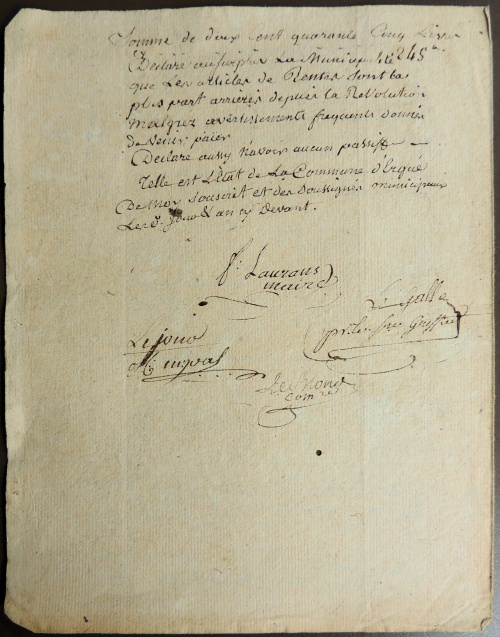 Somme de deux Cent quarante Cinq Livres
Declare aussi la Municip. 245
que Les articles de Rentes sont la
plus part arrierés depuis la Revolution
malgrez avertissements frequents donnés
de venir paier
Declare aussy navoir aucun passiff
Telle est L'état de La Commune d'Ergué
De moy soussit et des soussignés municipaux
Les jour & an cy devant.
f. Laurans
maire
Le Galle
Greffier
Le jour